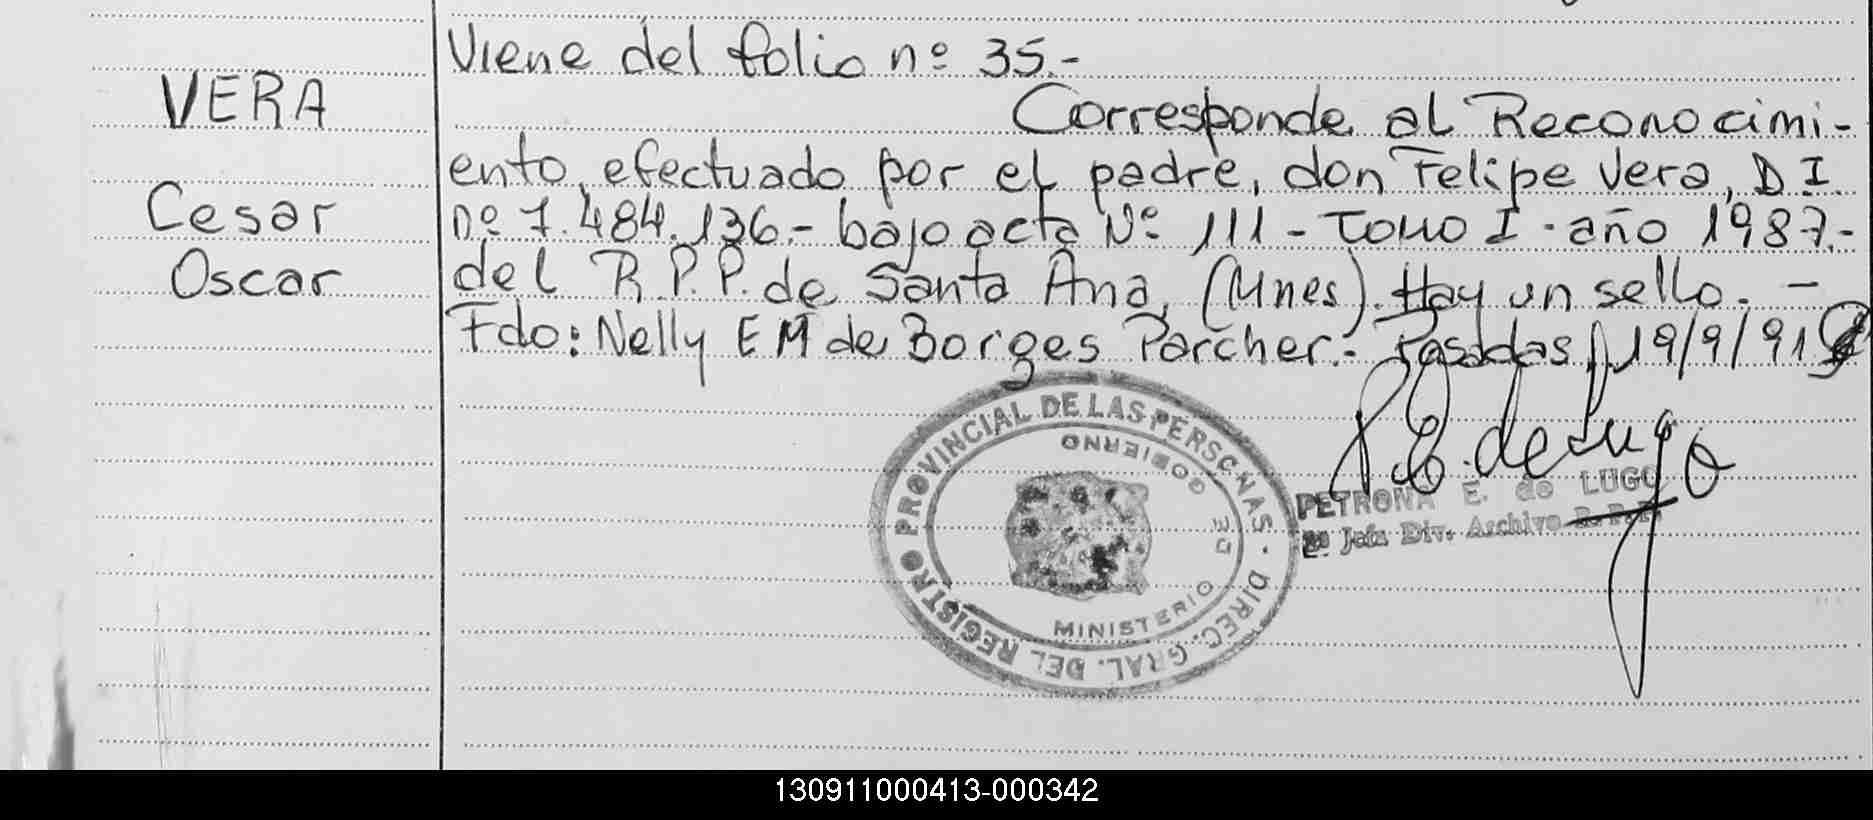 Viene del folio nº 35.-
VERA
Corresponde al Reconocimi-
ento, efectuado por el padre, don Felipe Vera, D I.
Cesar
nº 7.484.136.- bajo acta Nº 111 - Tomo I - año 1987.-
Oscar
del R.P.P. de Santa Ana, (Mnes). Hay un sello. -
Fdo: Nelly E M de Borges Parcher.- Posadas, 19/9/91
REGISTRO PROVINCIAL DE LAS PERSONAS · DIREC. GRAL. DEL
MINISTERIO DE GOBIERNO
P E. de Lugo
PETRONA E. de LUGO
2º Jefa Div. Archivo R. P. P.
130911000413-000342